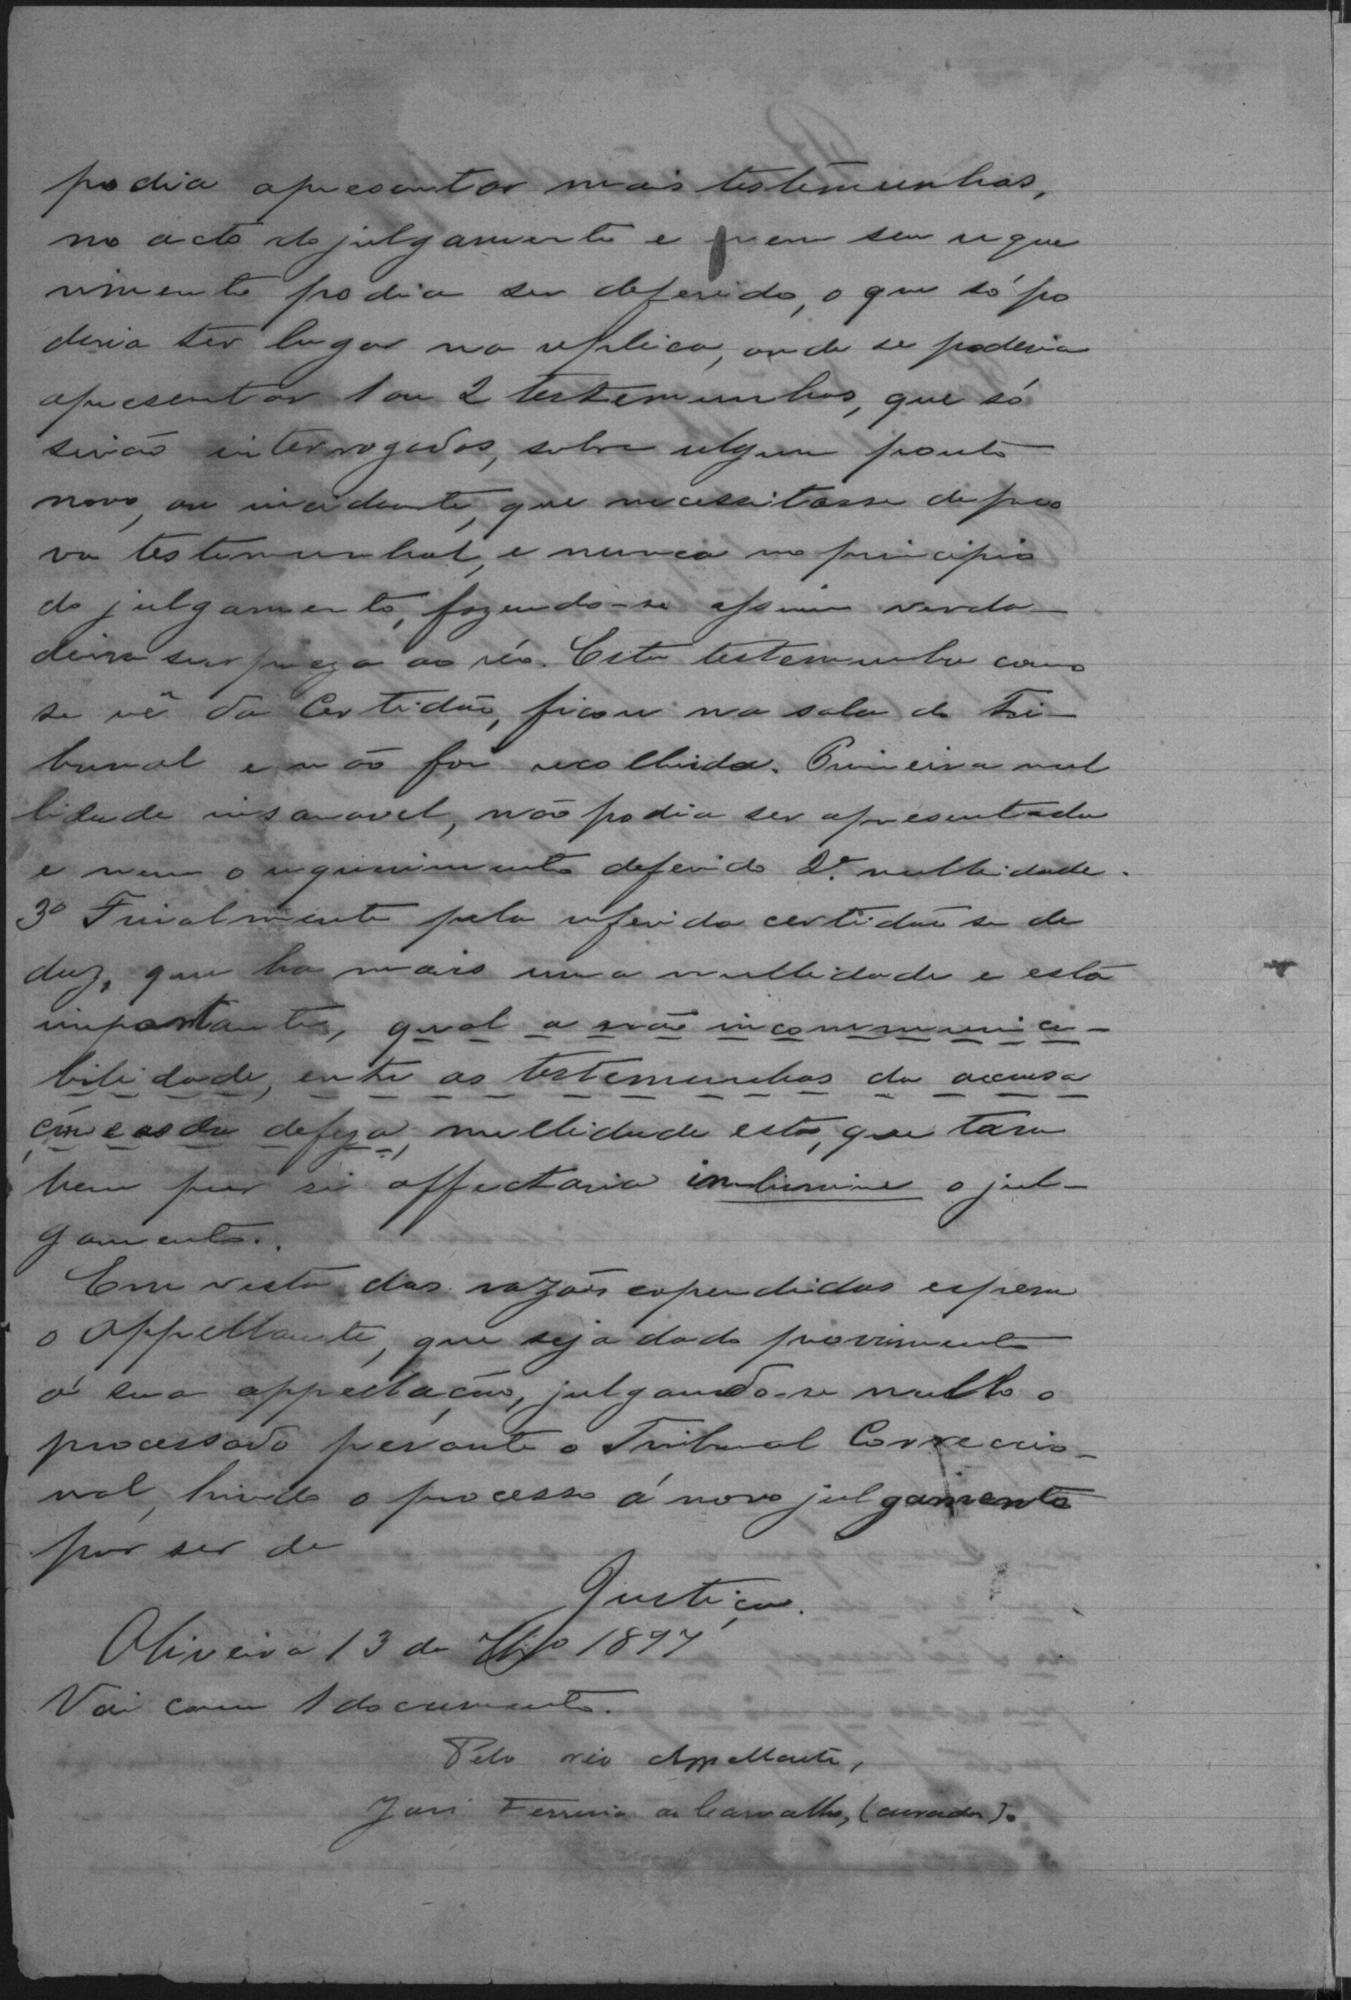 podia apresentar mais testemunhas,
no acto do julgamento e nem seu reque
rimento podia ser deferido, o que só po
deria ter lugar na replica, onde se poderia
apresentar 1 ou 2 testemunhas, que só
serião interrogadas, sobre algum ponto
novo, ou incidente, que necessitasse de pro
va testemunhal, e nunca no principio
do julgamento, fazendo-se assim verda-
deira surpreza ao réo. Esta testemunha como
se vê da Certidão, ficou na sala do Tri-
bunal e não foi recolhida. Primeira nul
lidade insanavel, não podia ser apresentada
e nem o requerimento deferido 2ª nullidade.
3º Finalmente pela referida certidão se de
duz, que ha mais uma nullidade e esta
importante, qual a não incommunica-
bilidade, entre as testemunhas da accusa
ção e as da defeza, nullidade esta, que tam
bem por si affectaria in limine o jul-
gamento.
Em vista das razões expendidas espera
o Appellante, que seja dado provimento
á sua appellação, julgando-se nullo o
processado perante o Tribunal Correccio-
nal, hindo o processo á novo julgamento
por ser de
Justiça.
Oliveira 13 de 1897
Vai com 1 documento.
Pelo réo Appellante,
José Ferreira de Carvalho, (curador).